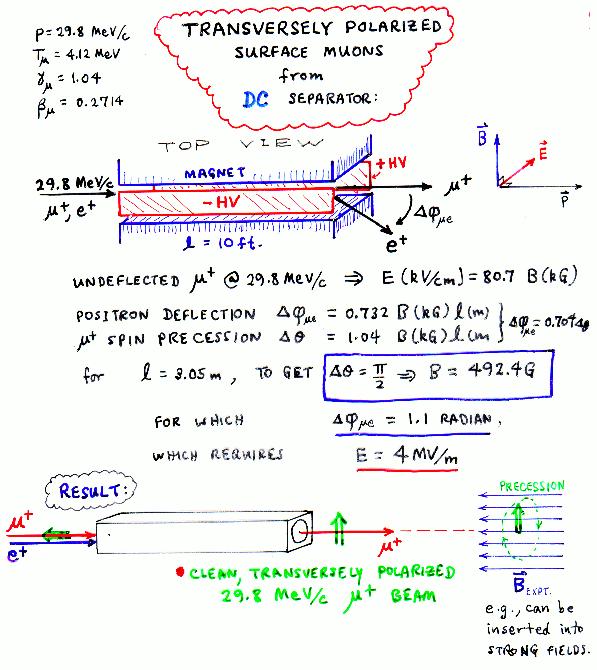 P = 29.8 MeV/c
Tμ = 4.12 MeV
γμ = 1.04
βμ = 0.2714
TRANSVERSELY POLARIZED
SURFACE MUONS
from
DC SEPARATOR:
TOP VIEW
MAGNET
+HV
29.8 MeV/c
μ⁺, e⁺
-HV
μ⁺
Δφμe
e⁺
l = 10 ft.
B⃗
E⃗
P⃗
UNDEFLECTED μ⁺ @ 29.8 MeV/c ⇒ E (kV/cm) = 80.7 B(kG)
POSITRON DEFLECTION Δφμe = 0.732 B(kG) l(m)
μ⁺ SPIN PRECESSION Δθ = 1.04 B(kG) l(m) } Δφμe = 0.704 Δθ
for l = 3.05 m, TO GET Δθ = π/2 ⇒ B = 492.4 G
FOR WHICH Δφμe = 1.1 RADIAN,
WHICH REQUIRES E = 4 MV/m
RESULT:
μ⁺
e⁺
μ⁺
• CLEAN, TRANSVERSELY POLARIZED
29.8 MeV/c μ⁺ BEAM
PRECESSION
B⃗ EXPT.
e.g., can be
inserted into
STRONG FIELDS.